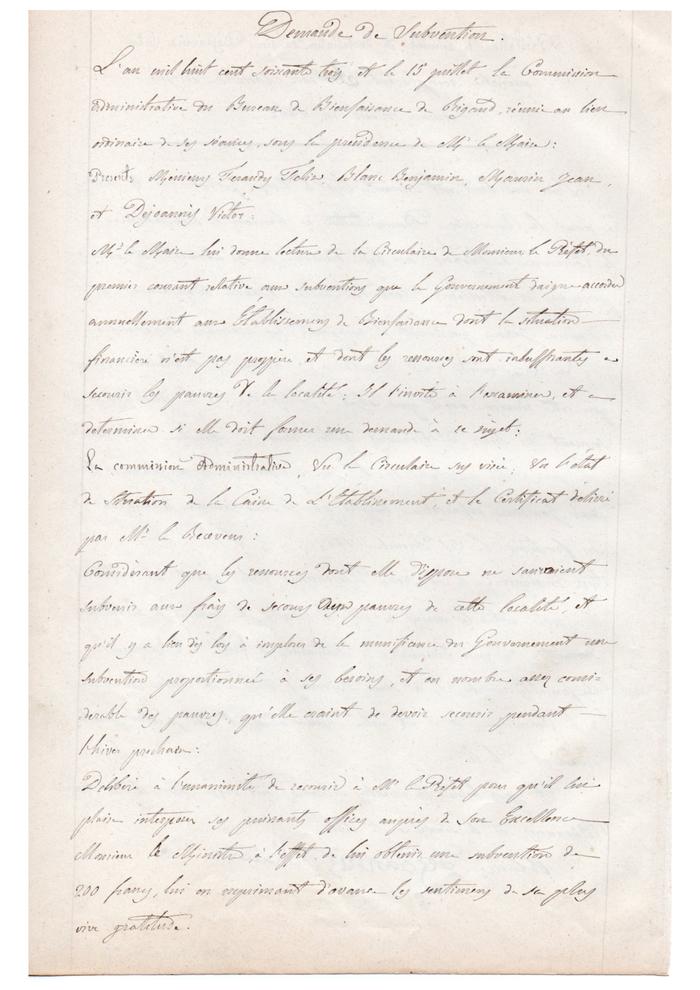 Demande de Subvention.
L'an mil huit cent soixante trois et le 15 juillet la Commission
administrative du Bureau de Bienfaisance de Rigaud, réunie au lieu
ordinaire de ses séances, sous la présidence de Mr le Maire :
Présents Messieurs Feraudy Felix, Blanc Benjamin, Maurin Jean,
et Dejoannis Victor :
Mr le Maire lui donne lecture de la Circulaire de Monsieur le Préfet, du
premier courant relative aux subventions que le Gouvernement daigne accorder
annuellement aux Etablissemens de Bienfaisance dont la situation
financière n'est pas prospère et dont les ressources sont insuffisantes a
secourir les pauvres de la localité ; Il l'invite à l'examiner, et a
déterminer si elle doit former une demande à ce sujet :
La commission administrative, Vu la Circulaire sus visée ; Vu l'état
de Situation de la Caisse de L'Etablissement, et le Certificat délivré
par Mr le Receveur :
Considérant que les ressources dont elle dispose ne sauraient
subvenir aux frais de secours des pauvres de cette localité, et
qu'il y a lieu dès lors à implorer de la munificance du Gouvernement une
subvention proportionnée à ses besoins, et au nombre assez consi-
dérable des pauvres, qu'elle craint de devoir secourir pendant
l'hiver prochain :
Délibère à l'unanimité de recourir à Mr le Préfet pour qu'il lui
plaise interposer ses puissants offices auprès de Son Excellence
Monsieur le Ministre, à l'effet de lui obtenir une subvention de
200 francs, lui en exprimant d'avance les sentimens de sa plus
vive gratitude.